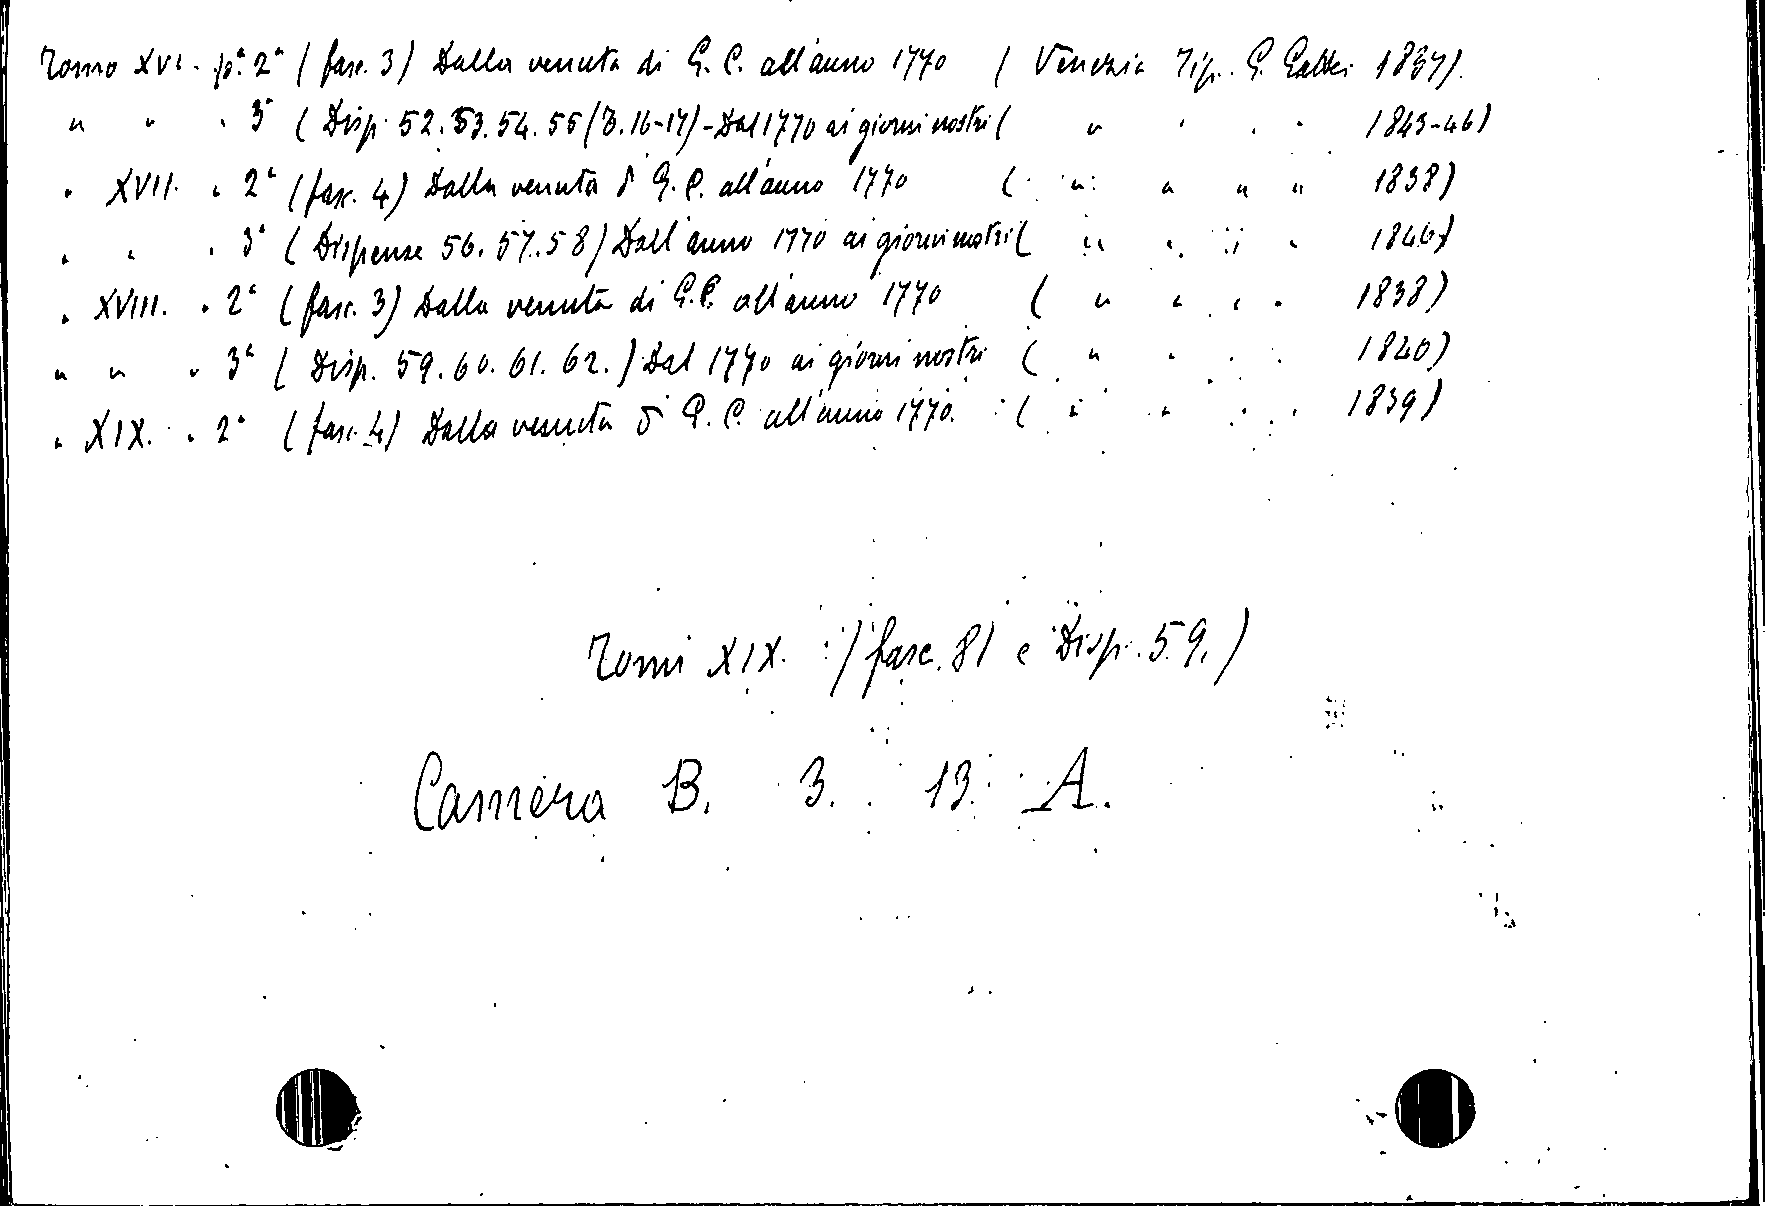 Tomo XVI. p.ª 2ª (fasc. 3) Dalla venuta di G. C. all'anno 1770 (Venezia Tip. G. Gattei 1837).
" " " 3ª (Disp. 52. 53. 54. 55 (T. 16-17) - Dal 1770 ai giorni nostri ( " " " " 1845-46)
" XVII. " 2ª (fasc. 4) Dalla venuta di G. C. all'anno 1770 ( " " " " 1838)
" " " 3ª (Dispense 56. 57. 58) Dall'anno 1770 ai giorni nostri ( " " " " 1846)
" XVIII. " 2ª (fasc. 3) Dalla venuta di G. C. all'anno 1770 ( " " " " 1838)
" " " 3ª (Disp. 59. 60. 61. 62.) Dal 1770 ai giorni nostri ( " " " " 1840)
" XIX. " 2ª (fasc. 4) Dalla venuta di G. C. all'anno 1770. ( " " " " 1839)
Tomi XIX. (fasc. 81 e Disp. 59.)
Camera B. 3. 13. A.